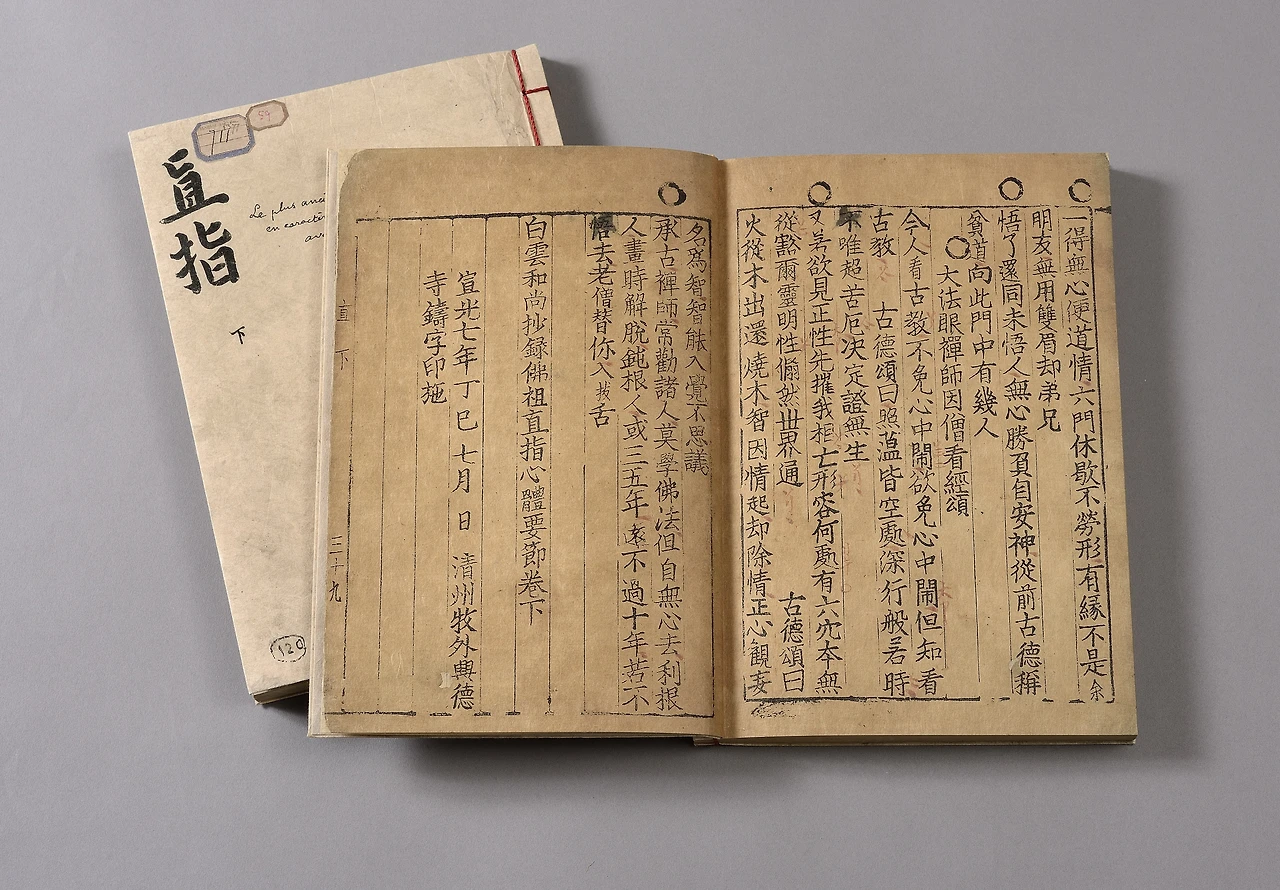 一得無心便道情六門休歇不勞形有緣不是余
朋友無用雙眉却弟兄
悟了還同未悟人無心勝負自安神從前古德稱
貧道向此門中有幾人
大法眼禪師因僧看經頌
今人看古教不免心中鬧欲免心中鬧但知看
古教 古德頌曰照薀皆空處深行般若時
不唯超苦厄决定證無生
又若欲見正性先摧我相亡形容何處有六穴本無
從豁爾靈明性翛然世界通 古德頌曰
火從木出還燒木智因情起却除情正心觀妄
名爲智智能入覺不思議
承古禪師常勸諸人莫學佛法但自無心去利根
人晝時解脫鈍根人或三五年遠不過十年若不
悟去老僧替你入拔舌
白雲和尚抄錄佛祖直指心體要節卷下
宣光七年丁巳七月 日 清州牧外興德
寺鑄字印施
直 下 三十九
直指
下
Le plus anc
en caractè
av
120